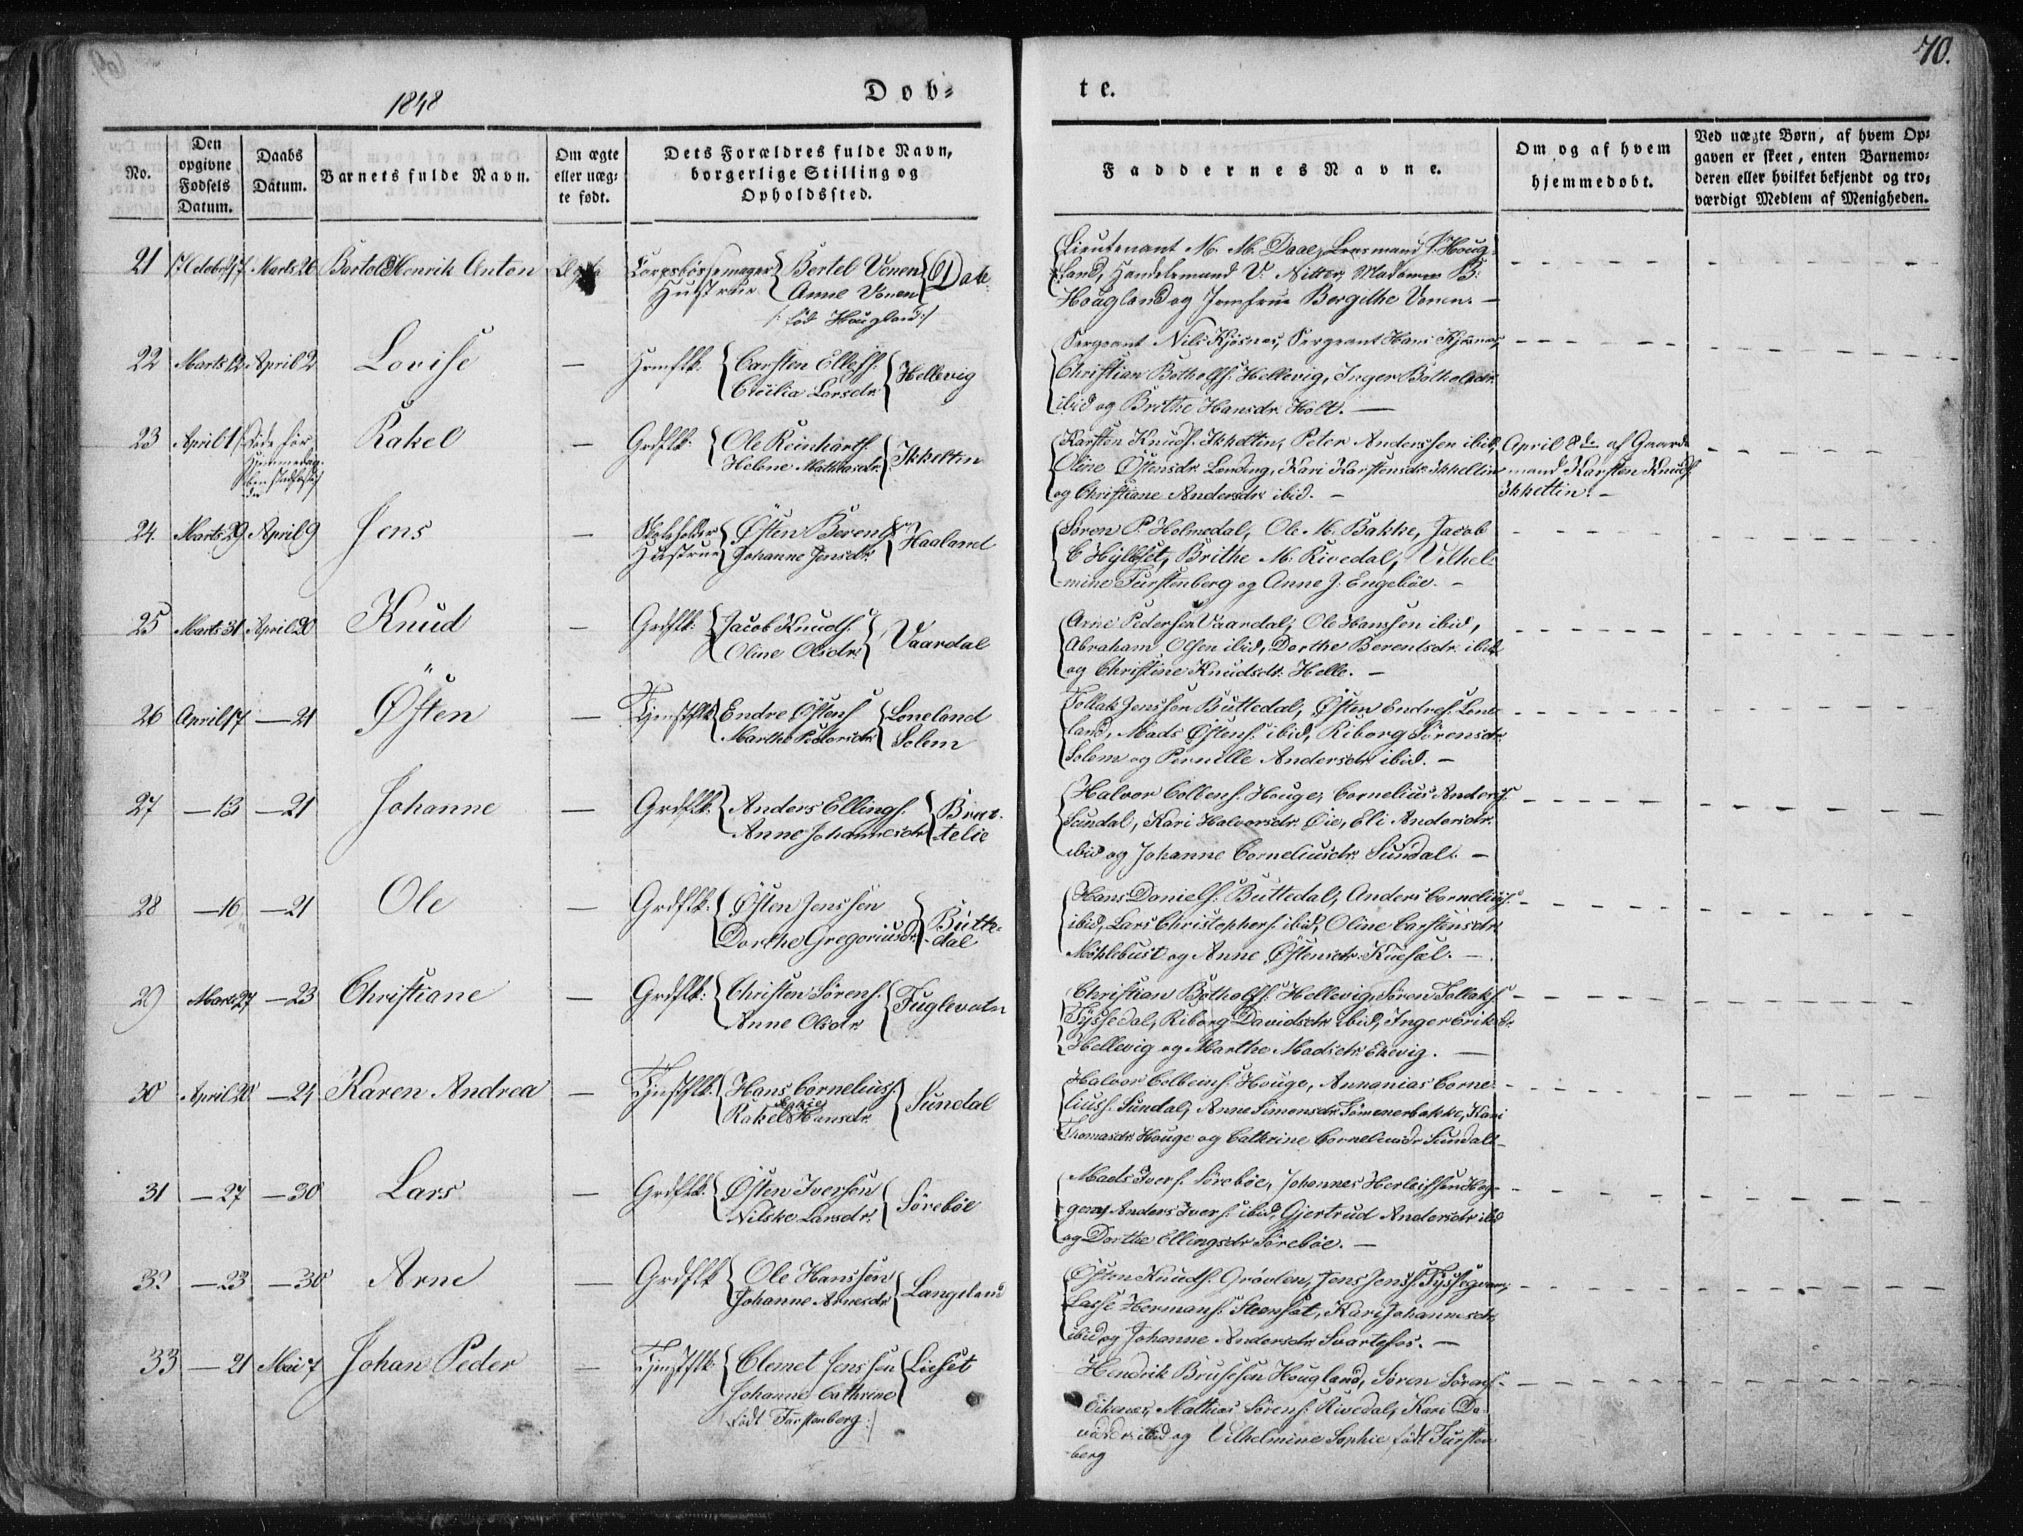 70.
1848
Dob-
te.
No.
Den opgivne Fødsels Datum.
Daabs Datum.
Barnets fulde Navn.
Om ægte eller uægte født.
Dets Forældres fulde Navn, borgerlige Stilling og Opholdssted.
Faddernes Navne.
Om og af hvem hjemmedøbt.
Ved uægte Børn, af hvem Opgaven er skeet, enten Barnemoderen eller hvilket bekjendt og troværdigt Medlem af Menigheden.
21 Marts 26 Henrik Anton Corpsbøssemager Bertel Vonen Dale
Hustrue Anne Vonen
/: föd Hougland :/
Lieutenant M. M. Daae, Lensmand Houg-
land, Handelsmand Nitter, Madame B.
Hougland og Jomfrue Bergithe Vonen. —
22 Marts 12 April 2 Lovise — Carsten Ellefs. Hellevig
Cicilia Larsdr.
Sergeant Nils Kjösnes, Sergeant Hans Kjösnes,
Christian Botholfs. Hellevig, Inger Botholfsdr.
ibid og Brithe Hansdr. Holt. —
23 April 1 Rakel — Grdflk. Ole Reinharth. Ikkeltin
Helene Mathiasdr.
Karsten Knuds. Ikkeltin, Peter Anderssen ibid,
Oline Östensdr. Lending, Kari Karstensdr. Ikkeltin
og Christiane Andersdr. ibid. —
April 8de af Gaard-
mand Karsten Knuds.
Ikkeltin. —
24. Marts 29 April 9 Jens — Östen Berents. Haaland
Hustrue Johanne Jensdr.
Sören P. Holmedal, Ole M. Bakke, Jacob
C Hylleset, Brithe M. Rivedal, Vilhel-
mine Furstenberg og Anne J. Engeböe. —
25 Marts 31 April 20 Knud — Grdflk. Jacob Knuds. Vaardal
Oline Olsdr.
Arne Pedersen Vaardal, Ole Hanssen ibid,
Abraham Olsen ibid, Dorthe Berentsdr. ibid
og Christine Knudsdr. Helle. —
26 April 17 — 21 Östen — Tjenstflk. Endre Östens. Loneland
Marthe Pedersdr. Solem
Tollak Jenssen Buttedal, Östen Endres. Lone-
land, Mads Östens. ibid, Riborg Sörensdr.
Solem og Pernille Andersdr. ibid. —
27 — 13 — 21 Johanne — Grdflk. Anders Ellings. Brat-
Anne Johannesdr. telie
Halvor Colbens. Houge, Cornelius Anders.
Sundal, Kari Halvorsdr. Öie, Eli Andersdr.
ibid og Johanne Corneliusdr. Sundal. —
28 — 16 — 21 Ole — Grdflk. Östen Jenssen Butte-
Dorthe Gregoriusdr. dal
Hans Daniels. Buttedal, Anders Cornelius.
ibid, Lars Christophers. ibid, Oline Carstensdr.
Möhlebust og Anne Östensdr. —
29 Marts 27 — 23 Christiane — Grdflk. Christen Sörens. Fuglevatn
Anne Olsdr.
Christian Botholfs. Hellevig, Sören Tollaks.
Tyssedal, Riborg Davidsdr. ibid, Inger Eriksdr.
Hellevig og Marthe Madsdr. Ekevig. —
30 April 20 — 24 Karen Andrea — Tjenstflk. Hans Cornelius. Sundal
Rakel Hansdr.
Halvor Colbeins. Houge, Annanias Corne-
lius. Sundal, Anne Simonsdr. Kari
Thomasdr. Houge og Cathrine Corneliusdr. Sundal —
31 — 27 — 30 Lars — Grdflk. Östen Iversen Söreböe
Nilske Larsdr.
Mads Ivers. Söreböe, Johannes
Anders Ivers. ibid, Gjertrud Andersdr. ibid
og Dorthe Ellingsdr. Söreböe. —
32 — 23 — 30 Arne — Grdflk Ole Hanssen Langeland
Johanne Arnesdr.
Östen Knuds. Grövlen, Jens Jens.
Lasse Hermans. Steensæt, Kari Johannesdr.
ibid og Johanne Andersdr. Svartefos. —
33 — 21 Mai 7 Johan Peder — Tjenstflk Clemet Jenssen Lieset
Johanne Cathrine
/: födt Furstenberg :/
Hendrik Hougland, Sören Sörens.
Eikenes, Mathias Sörens. Rivedal, Kari Da-
vidsdr. ibid og Vilhelmine Sophie födt Fursten
berg